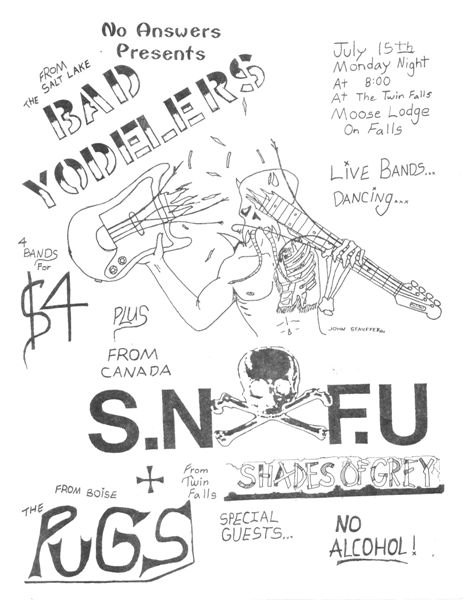 No Answers
Presents
FROM
SALT LAKE
THE
BAD
YODELERS
July 15th
Monday Night
At 8:00
At The Twin Falls
Moose Lodge
On Falls
LIVE BANDS...
DANCING...
4
BANDS
for
$4
JOHN STAUFFER
PLUS
FROM
CANADA
S.N F.U
+
From
Twin
Falls
SHADES OF GREY
FROM BOISE
THE
PUGS
SPECIAL
GUESTS...
NO
ALCOHOL!